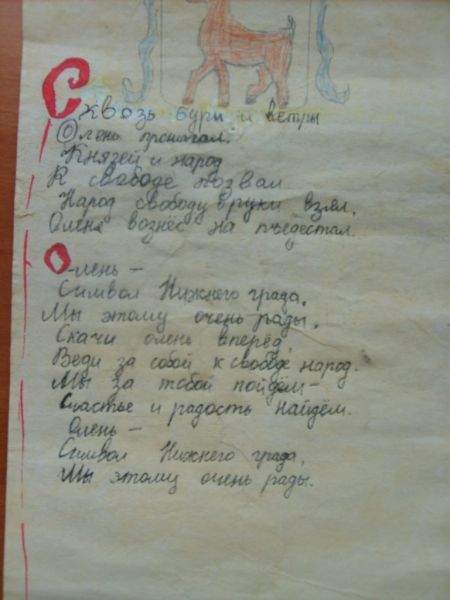 Сквозь бури и ветры
Олень прошагал.
Князей и народ
К свободе позвал
Народ свободу в руки взял,
Оленя вознёс на пьедестал.
Олень –
Символ Нижнего града,
Мы этому очень рады.
Скачи олень вперёд,
Веди за собой к свободе народ.
Мы за тобой пойдём –
Счастье и радость найдём.
Олень –
Символ Нижнего града,
Мы этому очень рады.